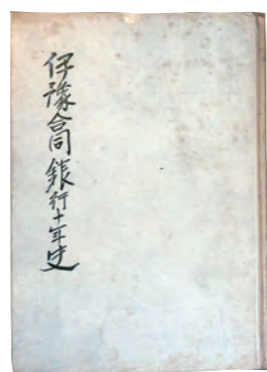 伊豫合同銀行十年史